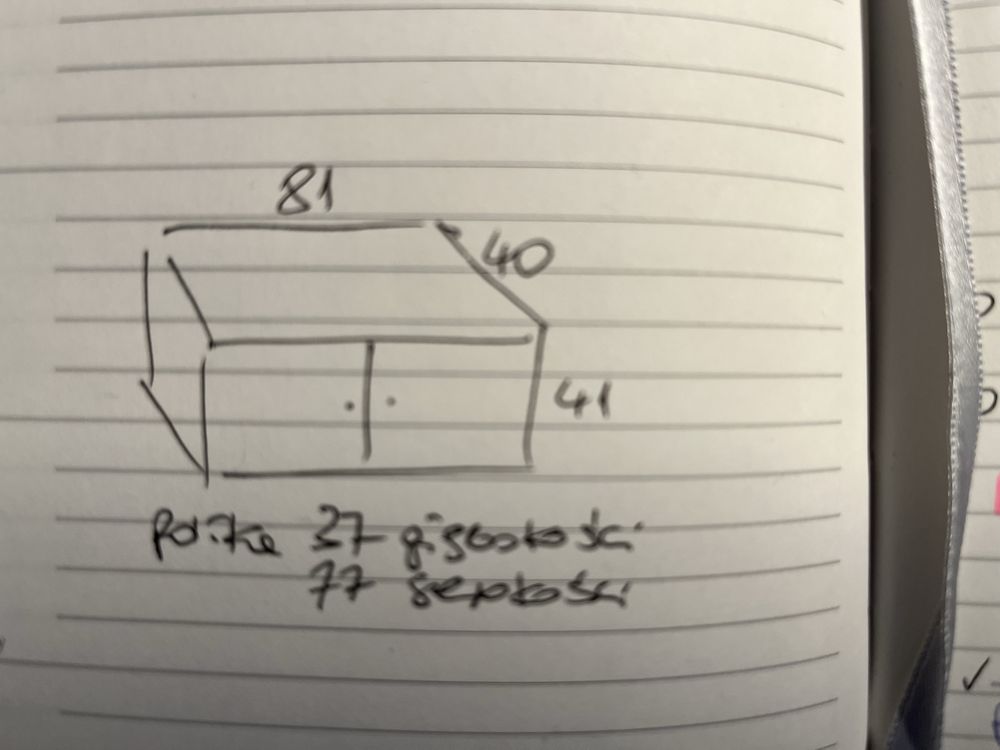 81
40
41
Półka 37 głębokości
77 szerokości